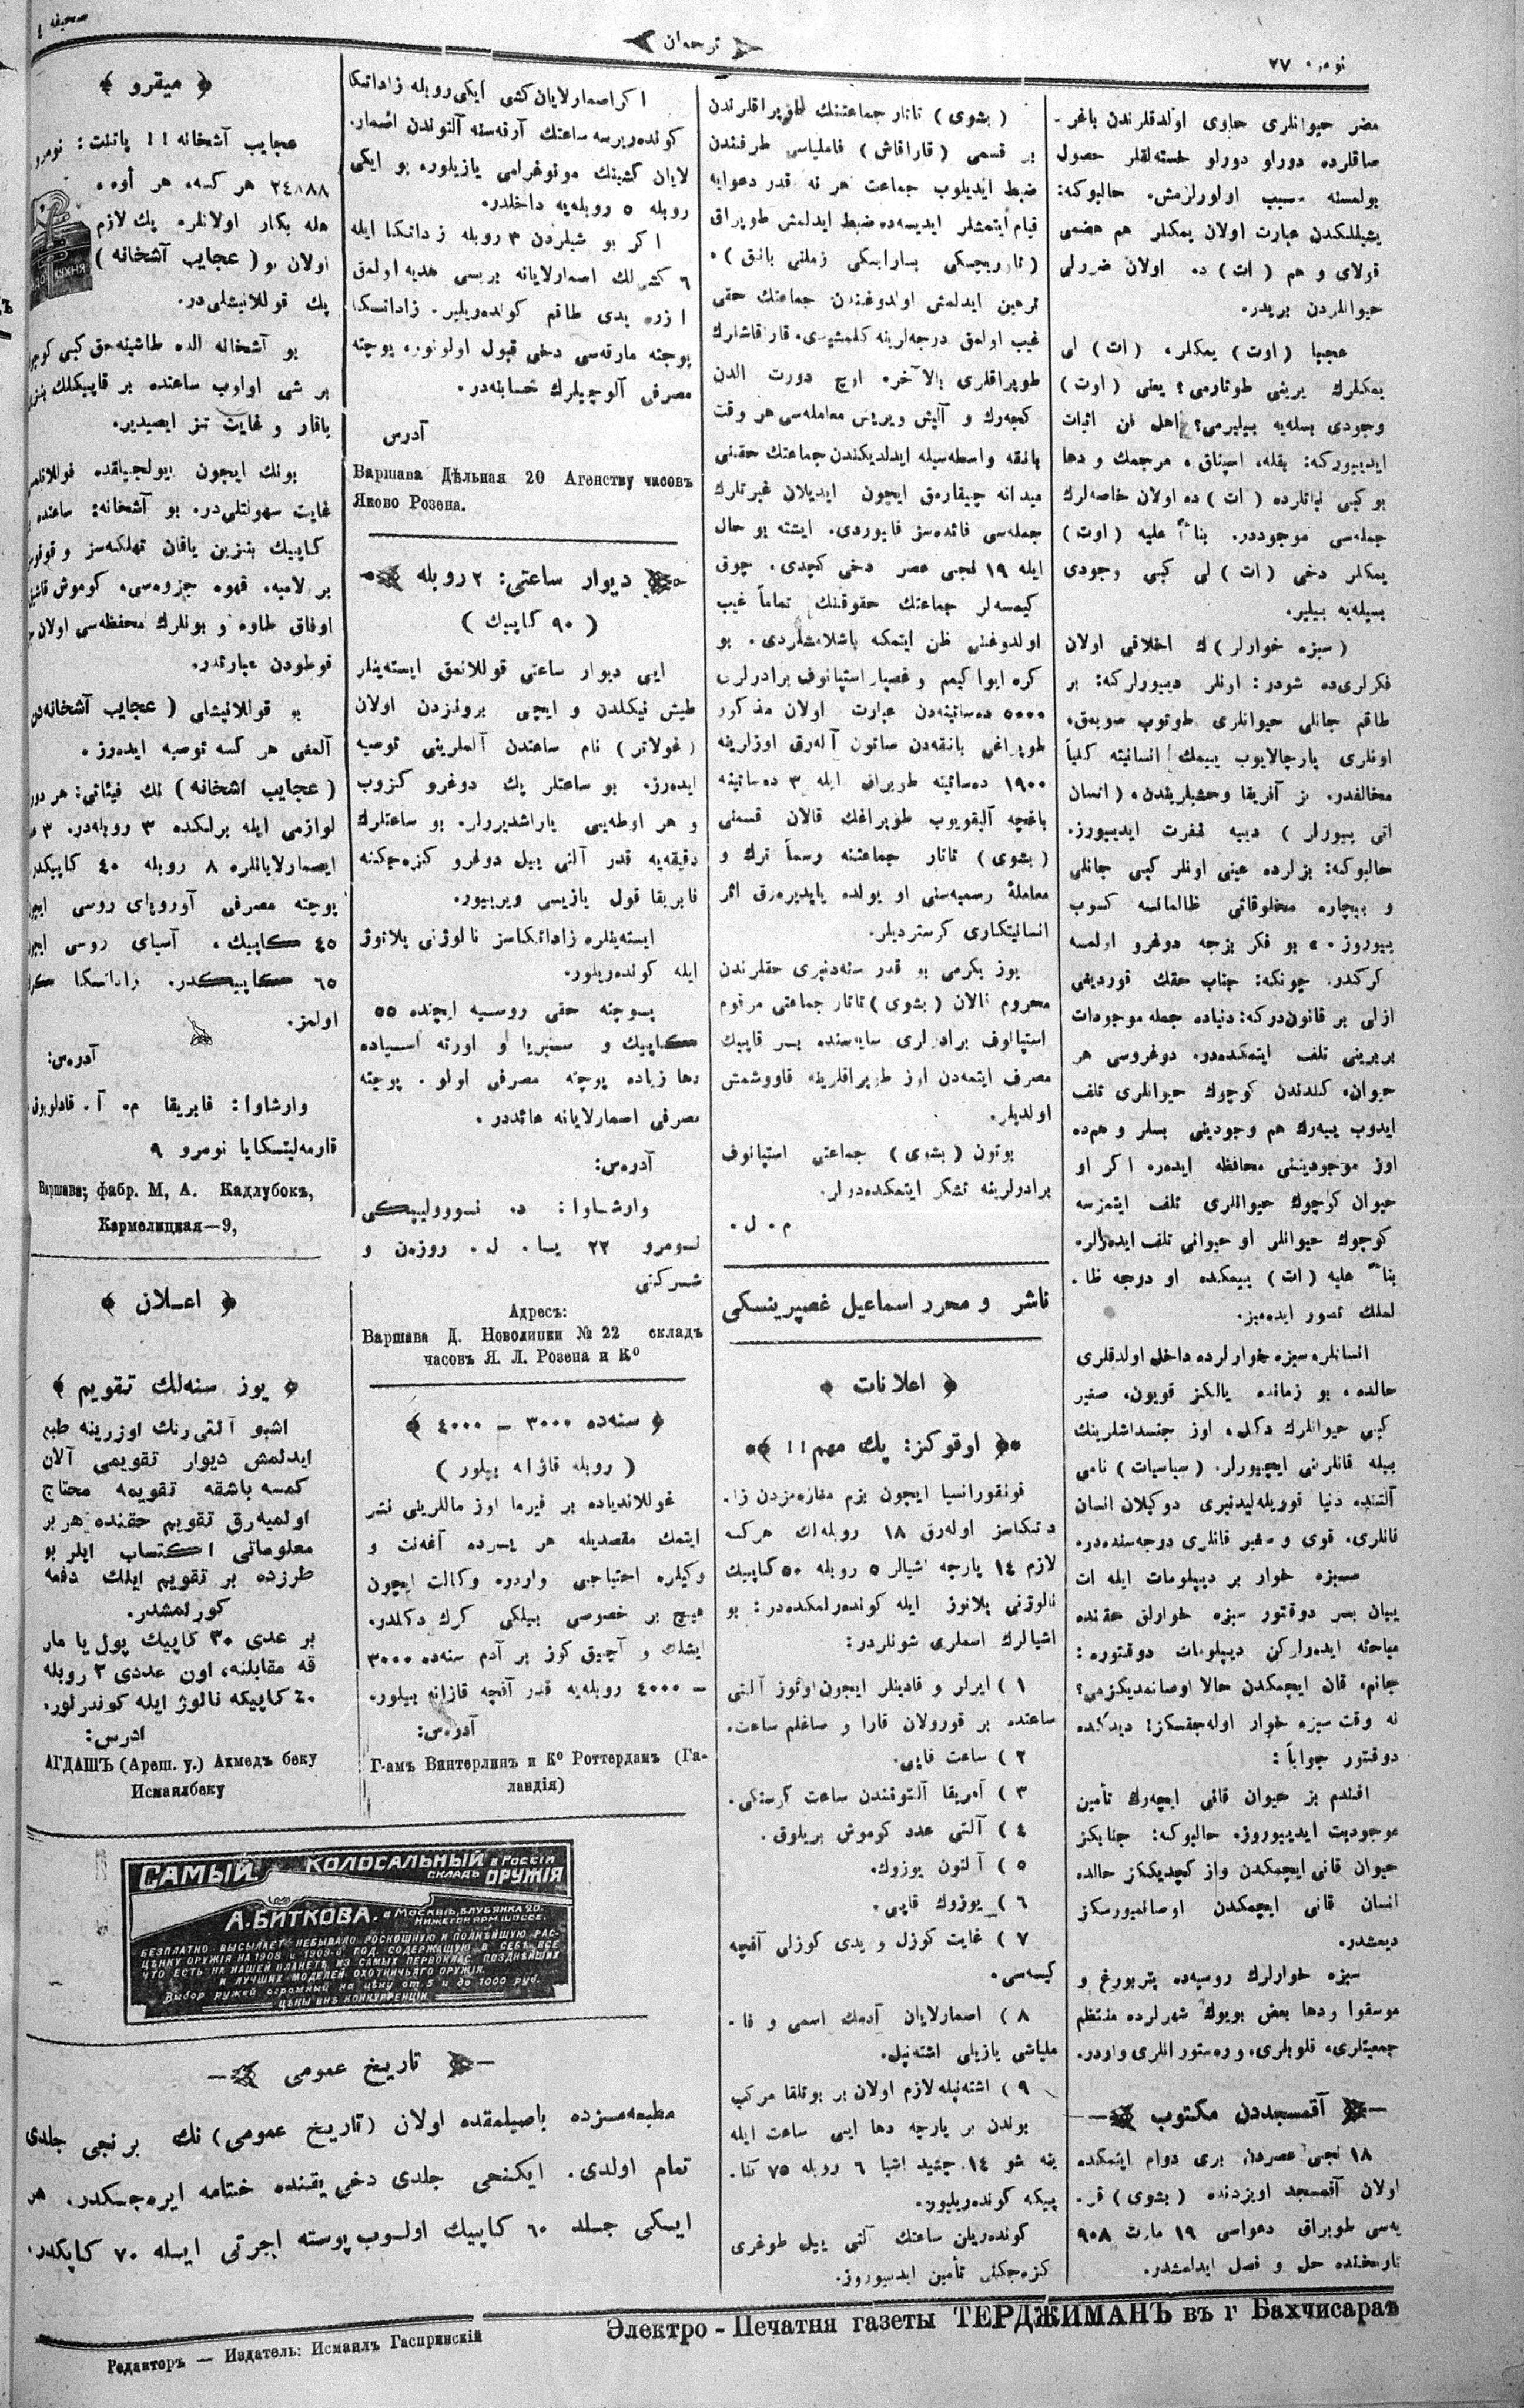 نومرو ٢٧
ترجمان
صحیفه ٤
مضر حیوانلری حاوی اولدقلرندن باغر-
صاقلرده دورلو دورلو خسته‌لقلر حصول
بولمسنه سبب اولورلرمش. حالبوکه:
یشیللکدن عبارت اولان یمکلر هم هضمی
قولای و هم (ات) ده اولان ضررلی
حیوانلردن بریدر.
عجبا (اوت) یمکلر، (ات) لی
یمکلرك یرینی طوتارمی؟ یعنی (اوت)
وجودی بسله‌یه بیلیرمی؟ اهل فن اثبات
ایدییورکه: بقله، اسپناق، مرجمك و دها
بو کبی نباتلرده (ات) ده اولان خاصه‌لرك
جمله‌سی موجوددر. بناءً علیه (اوت)
یمکلر دخی (ات) لی کبی وجودی
بسیله‌یه بیلیر.
(سبزه خوارلر) ك اخلاقی اولان
فکرلری‌ده شودر: اونلر دیییورلرکه: بر
طاقم جانلی حیوانلری طوتوب صویمق،
اونلری پارچالایوب ییمك انسانیته کلیاً
مخالفدر. بز آفریقا وحشیلریندن، (انسان
اتی ییورلر) دییه نفرت ایدییورز.
حالبوکه: بزلرده عینی اونلر کبی جانلی
و بیچاره مخلوقاتی ظالمانه کسوب
ییوروز.» بو فکر بزجه دوغرو اولمسه
کرکدر. چونکه: جناب حقك قوردیغی
ازلی بر قانون‌درکه: دنیاده جمله موجودات
بربرینی تلف ایتمکده‌در. دوغروسی هر
حیوان، کندندن کوچوك حیوانلری تلف
ایدوب ییه‌رك هم وجودینی بسلر و هم‌ده
اوز موجودیتنی محافظه ایده‌ر، اکر او
حیوان کوچوك حیوانلری تلف ایتمزسه
کوچوك حیوانلر او حیوانی تلف ایده‌رلر.
بناءً علیه (ات) ییمکده او درجه ظا-
لملك تصور ایده‌میز.
انسانلر، سبزه خوارلرده داخل اولدقلری
حالده، بو زمانده یالکز قویون، صغیر
کبی حیوانلرك دکل، اوز جنسداشلرینك
بیله قانلرینی ایچییورلر. (سیاسیات) نامی
آلتنده دنیا قوریله‌لیدنبری دوکیلان انسان
قانلری، قوی و صغیر قانلری درجه‌سنده‌در.
سبزه خوار بر دیپلومات ایله ات
ییان بر دوقتور سبزه خوارلق حقنده
مباحثه ایده‌رلرکن دیپلومات دوقتوره:
جانم، قان ایچمکدن حالا اوصانمدیکزمی؟
نه وقت سبزه خوار اوله‌جقسکز؟ دیدکده
دوقتور جواباً:
افندم بز حیوان قانی ایچه‌رك تأمین
موجودیت ایدییوروز. حالبوکه: جنابکز
حیوان قانی ایچمکدن واز کچدیککز حالده
انسان قانی ایچمکدن اوصانمیورسکز
دیمشدر.
سبزه خوارلرك روسیه‌ده پتربورغ و
موسقوا ودها بعض بویوك شهرلرده منتظم
جمعیتلری، قلوبلری، و ره‌ستورانلری واردر.
آقمسجددن مکتوب
١٨ نجی عصردن بری دوام ایتمکده
اولان آقمسجد اویزدنده (بشوی) قر-
یه‌سی طوپراق دعواسی ١٩ مارت ٩٠٨
تاریخنده حل و فصل ایدلمشدر.
(بشوی) تاتار جماعتنك طوپراقلرندن
بر قسمی (قاراقاش) فاملیاسی طرفندن
ضبط ایدیلوب جماعت هر نه قدر دعوایه
قیام ایتمشلر ایدیسه‌ده ضبط ایدلمش طوپراق
ترهین ایدلمش اولدوغندن جماعتك حقی
غیب اولمق درجه‌لرینه کلمشیدی. قاراقاشلرك
طوپراقلری بالآخره اوچ دورت الدن
کچه‌رك و آلیش ویریش معامله‌سی هر وقت
بانقه واسطه‌سیله ایدلدیکندن جماعتك حقینی
میدانه چیقارمق ایچون ایدیلان غیرتلرك
جمله‌سی فائده‌سز قالیوردی. ایشته بو حال
ایله ١٩ نجی عصر دخی کچدی. چوق
کیمسه‌لر جماعتك حقوقینك تماماً غیب
اولدوغنی ظن ایتمکه باشلامشلردی. بو
کره ایواکیم و غصپار استپانوف برادرلری
٥٠٠٠ ده‌ساتینه‌دن عبارت اولان مذکور
طوپراغی بانقه‌دن صاتون آله‌رق اوزلرینه
١٩٠٠ ده‌ساتینه طوپراق ایله ٣ ده‌ساتینه
باغچه آلیقویوب طوپراغك قالان قسمنی
(بشوی) تاتار جماعتنه رسماً ترك و
معاملهٔ رسمیه‌سنی او یولده یاپدیره‌رق اثر
انسانیتکاری کوستردیلر.
یوز یکرمی بو قدر سنه‌دنبری حقلرندن
محروم قالان (بشوی) تاتار جماعتی مرقوم
استپانوف برادرلری سایه‌سنده بر قاپیك
مصرف ایتمه‌دن اوز طوپراقلرینه قاووشمش
اولدیلر.
بوتون (بشوی) جماعتی استپانوف
برادرلرینه تشکر ایتمکده‌درلر.
م. ل.
ناشر و محرر اسماعیل غصپرینسکی
اعلانات
اوقوکز: پك مهم!!
قونقورانسیا ایچون بزم مغازه‌مزدن زا-
داتکاسز اوله‌رق ١٨ روبله‌لك هرکسه
لازم ١٤ پارچه اشیالر ٥ روبله ٥٠ کاپیك
نالوژنی پلاتوژ ایله کوندرلمکده‌در: بو
اشیالرك اسملری شونلردر:
١) ایرلر و قادینلر ایچون اوتوز آلتی
ساعتده بر قورولان قارا و صاغلم ساعت.
٢) ساعت قابی.
٣) آمریقا آلتونندن ساعت کوستکی.
٤) آلتی عدد کوموش بریلوق.
٥) آلتون یوزوك.
٦) یوزوك قابی.
٧) غایت کوزل و یدی کوزلی آقچه
کیسه‌سی.
٨) اصمارلایان آدمك اسمی و فا-
ملیاسی یازیلی اشته‌نپل.
٩) اشته‌نپله لازم اولان بر بوتلقا مرکب
بوندن بر پارچه دها ایی ساعت ایله
ینه شو ١٤ چشید اشیا ٦ روبله ٧٥ کا-
پیکه کونده‌ریلیور.
کونده‌ریلن ساعتك آلتی ییل طوغری
کزه‌جکنی تأمین ایدییوروز.
اکر اصمارلایان کشی ایکی روبله زاداتکا
کونده‌ررسه ساعتك آرقه‌سنه آلتوندن اصمار-
لایان کشینك مونوغرامی یازیلور، بو ایکی
روبله ٥ روبله‌یه داخلدر.
اکر بو شیلردن ٣ روبله زداتکا ایله
٦ کشی‌لك اصمارلایانه بریسی هدیه اولمق
ازره یدی طاقم کونده‌ریلیر. زاداتسکا
پوچته مارقه‌سی دخی قبول اولونور، پوچته
مصرفی آلوچیلرك حسابنه‌در.
آدرس
Варшава Дѣльная 20 Агенству часовъ
Яково Розена.
دیوار ساعتی: ٢ روبله
(٩٠ کاپیك)
ایی دیوار ساعتی قوللانمق ایسته‌ینلر
طیش نیکلدن و ایچی برونزدن اولان
(غولاتر) نام ساعتدن آلملرینی توصیه
ایده‌رز. بو ساعتلر پك دوغرو کزوب
و هر اوطه‌یی یاراشدیرولر. بو ساعتلرك
دقیقه‌یه قدر آلتی ییل دوغرو کزه‌جکنه
فابریقا قول یازیسی ویرییور.
ایسته‌ینلره زاداتکاسز نالوژنی پلاتوژ
ایله کونده‌ریلور.
پوچته حقی روسیه ایچنده ٥٥
کاپیك و سیبریا و اورته آسیاده
دها زیاده پوچته مصرفی اولور. پوچته
مصرفی اصمارلایانه عائددر.
آدره‌س:
وارشاوا: د. نووولیپکی
نومرو ٢٢ یا. ل. روزه‌ن و
شرکتی
Адресъ:
Варшава Д. Новолипки № 22 складъ
часовъ Я. Л. Розена и Кº
سنه‌ده ٣٠٠٠ – ٤٠٠٠
(روبله قازانه بیلور)
غوللاندیاده بر فیرما اوز ماللرینی نشر
ایتمك مقصدیله هر یرده آغه‌نت و
وکیلره احتیاجی واردر، وکالت ایچون
هیچ بر خصوصی بیلکی کرك دکلدر.
ایشلك و آچیق کوز بر آدم سنه‌ده ٣٠٠٠
– ٤٠٠٠ روبله‌یه قدر آقچه قازانه بیلور.
آدره‌س:
Г-амъ Винтерлинъ и Кº Роттердамъ (Га-
ландія)
میقرو
عجایب آشخانه!! پاتنت: نومرو
٢٤٨٨٨ هر کسه، هر أوه،
هله بکار اولانلره پك لازم
اولان بو (عجایب آشخانه)
پك قوللانیشلی‌در.
КУХНЯ
بو آشخانه الده طاشینه‌جق کبی کوچوك
بر شی اولوب ساعتده بر قاپیکلك بنزین
یاقار و غایت تیز ایصیدیر.
بونك ایچون یولجیلقده قوللانلمسی
غایت سهولتلی‌در. بو آشخانه: ساعتده
کاپیك بنزین یاقان تهلکه‌سز و قوقوسز
بر لامبه، قهوه جزوه‌سی، کوموش قاشیق
اوفاق طاوه و بونلرك محفظه‌سی اولان
قوطودن عبارتدر.
بو قوللانیشلی (عجایب آشخانه‌دن)
آلمغی هر کسه توصیه ایده‌رز.
(عجایب اشخانه) نك فیئاتی: هر دورلو
لوازمی ایله برلکده ٣ روبله‌در. ٣
ایصمارلایانلره ٨ روبله ٤٠ کاپیکدر
پوچته مصرفی آوروپای روسی ایچون
٤٥ کاپیك، آسیای روسی ایچون
٦٥ کاپیکدر. زاداتسکا کرك
اولمز.
آدره‌س:
وارشاوا: فابریقا م. آ. قادلوبوق
قارمه‌لیتسکایا نومرو ٩
Варшава; фабр. М, А. Кадлубокъ,
Кармелицкая—9,
اعلان
یوز سنه‌لك تقویم
اشبو آلتی رنك اوزرینه طبع
ایدلمش دیوار تقویمی آلان
کمسه باشقه تقویمه محتاج
اولمیه‌رق تقویم حقنده هر بر
معلوماتی اکتساب ایلر بو
طرزده بر تقویم ایلك دفعه
کورلمشدر.
بر عددی ٣٠ کاپیك پول یا مار
قه مقابلنه، اون عددی ٢ روبله
٤٠ کاپیکه نالوژ ایله کوندرلور.
ادرس:
АГДАШЪ (Ареш. у.) Ахмедъ беку
Исмаилбеку
САМЫЙ КОЛОСАЛЬНЫЙ в РОССІИ
СКЛАДЪ ОРУЖІЯ
А. БИТКОВА. в Москвѣ, Б. ЛУБЯНКА 20.
НИЖЕГОР. ЯРМ. ШОССЕ.
БЕЗПЛАТНО ВЫСЫЛАЕТ НЕБЫВАЛО РОСКОШНУЮ И ПОЛНѢЙШУЮ РАС-
ЦѢНКУ ОРУЖІЯ НА 1908 и 1909-й ГОД, СОДЕРЖАЩУЮ В СЕБѢ ВСЕ
ЧТО ЕСТЬ НА НАШЕЙ ПЛАНЕТѢ ИЗ САМЫХ ПЕРВОКЛАС. ПОЗДНѢЙШИХ
И ЛУЧШИХ МОДЕЛЕЙ ОХОТНИЧЬЯГО ОРУЖІЯ.
Выбор ружей огромный на цѣну от 5 и до 1000 руб.
ЦѢНЫ ВНѢ КОНКУРРЕНЦІИ.
تاریخ عمومی
مطبعه‌مزده باصیلمقده اولان (تاریخ عمومی) نك برنجی جلدی
تمام اولدی. ایکنجی جلدی دخی یقنده ختامه ایره‌جکدر. هر
ایکی جلد ٦٠ کاپیك اولوب پوسته اجرتی ایله ٧٠ کاپکدر.
Электро - Печатня газеты ТЕРДЖИМАНЪ въ г Бахчисараѣ
Редакторъ — Издатель: Исмаилъ Гаспринскій